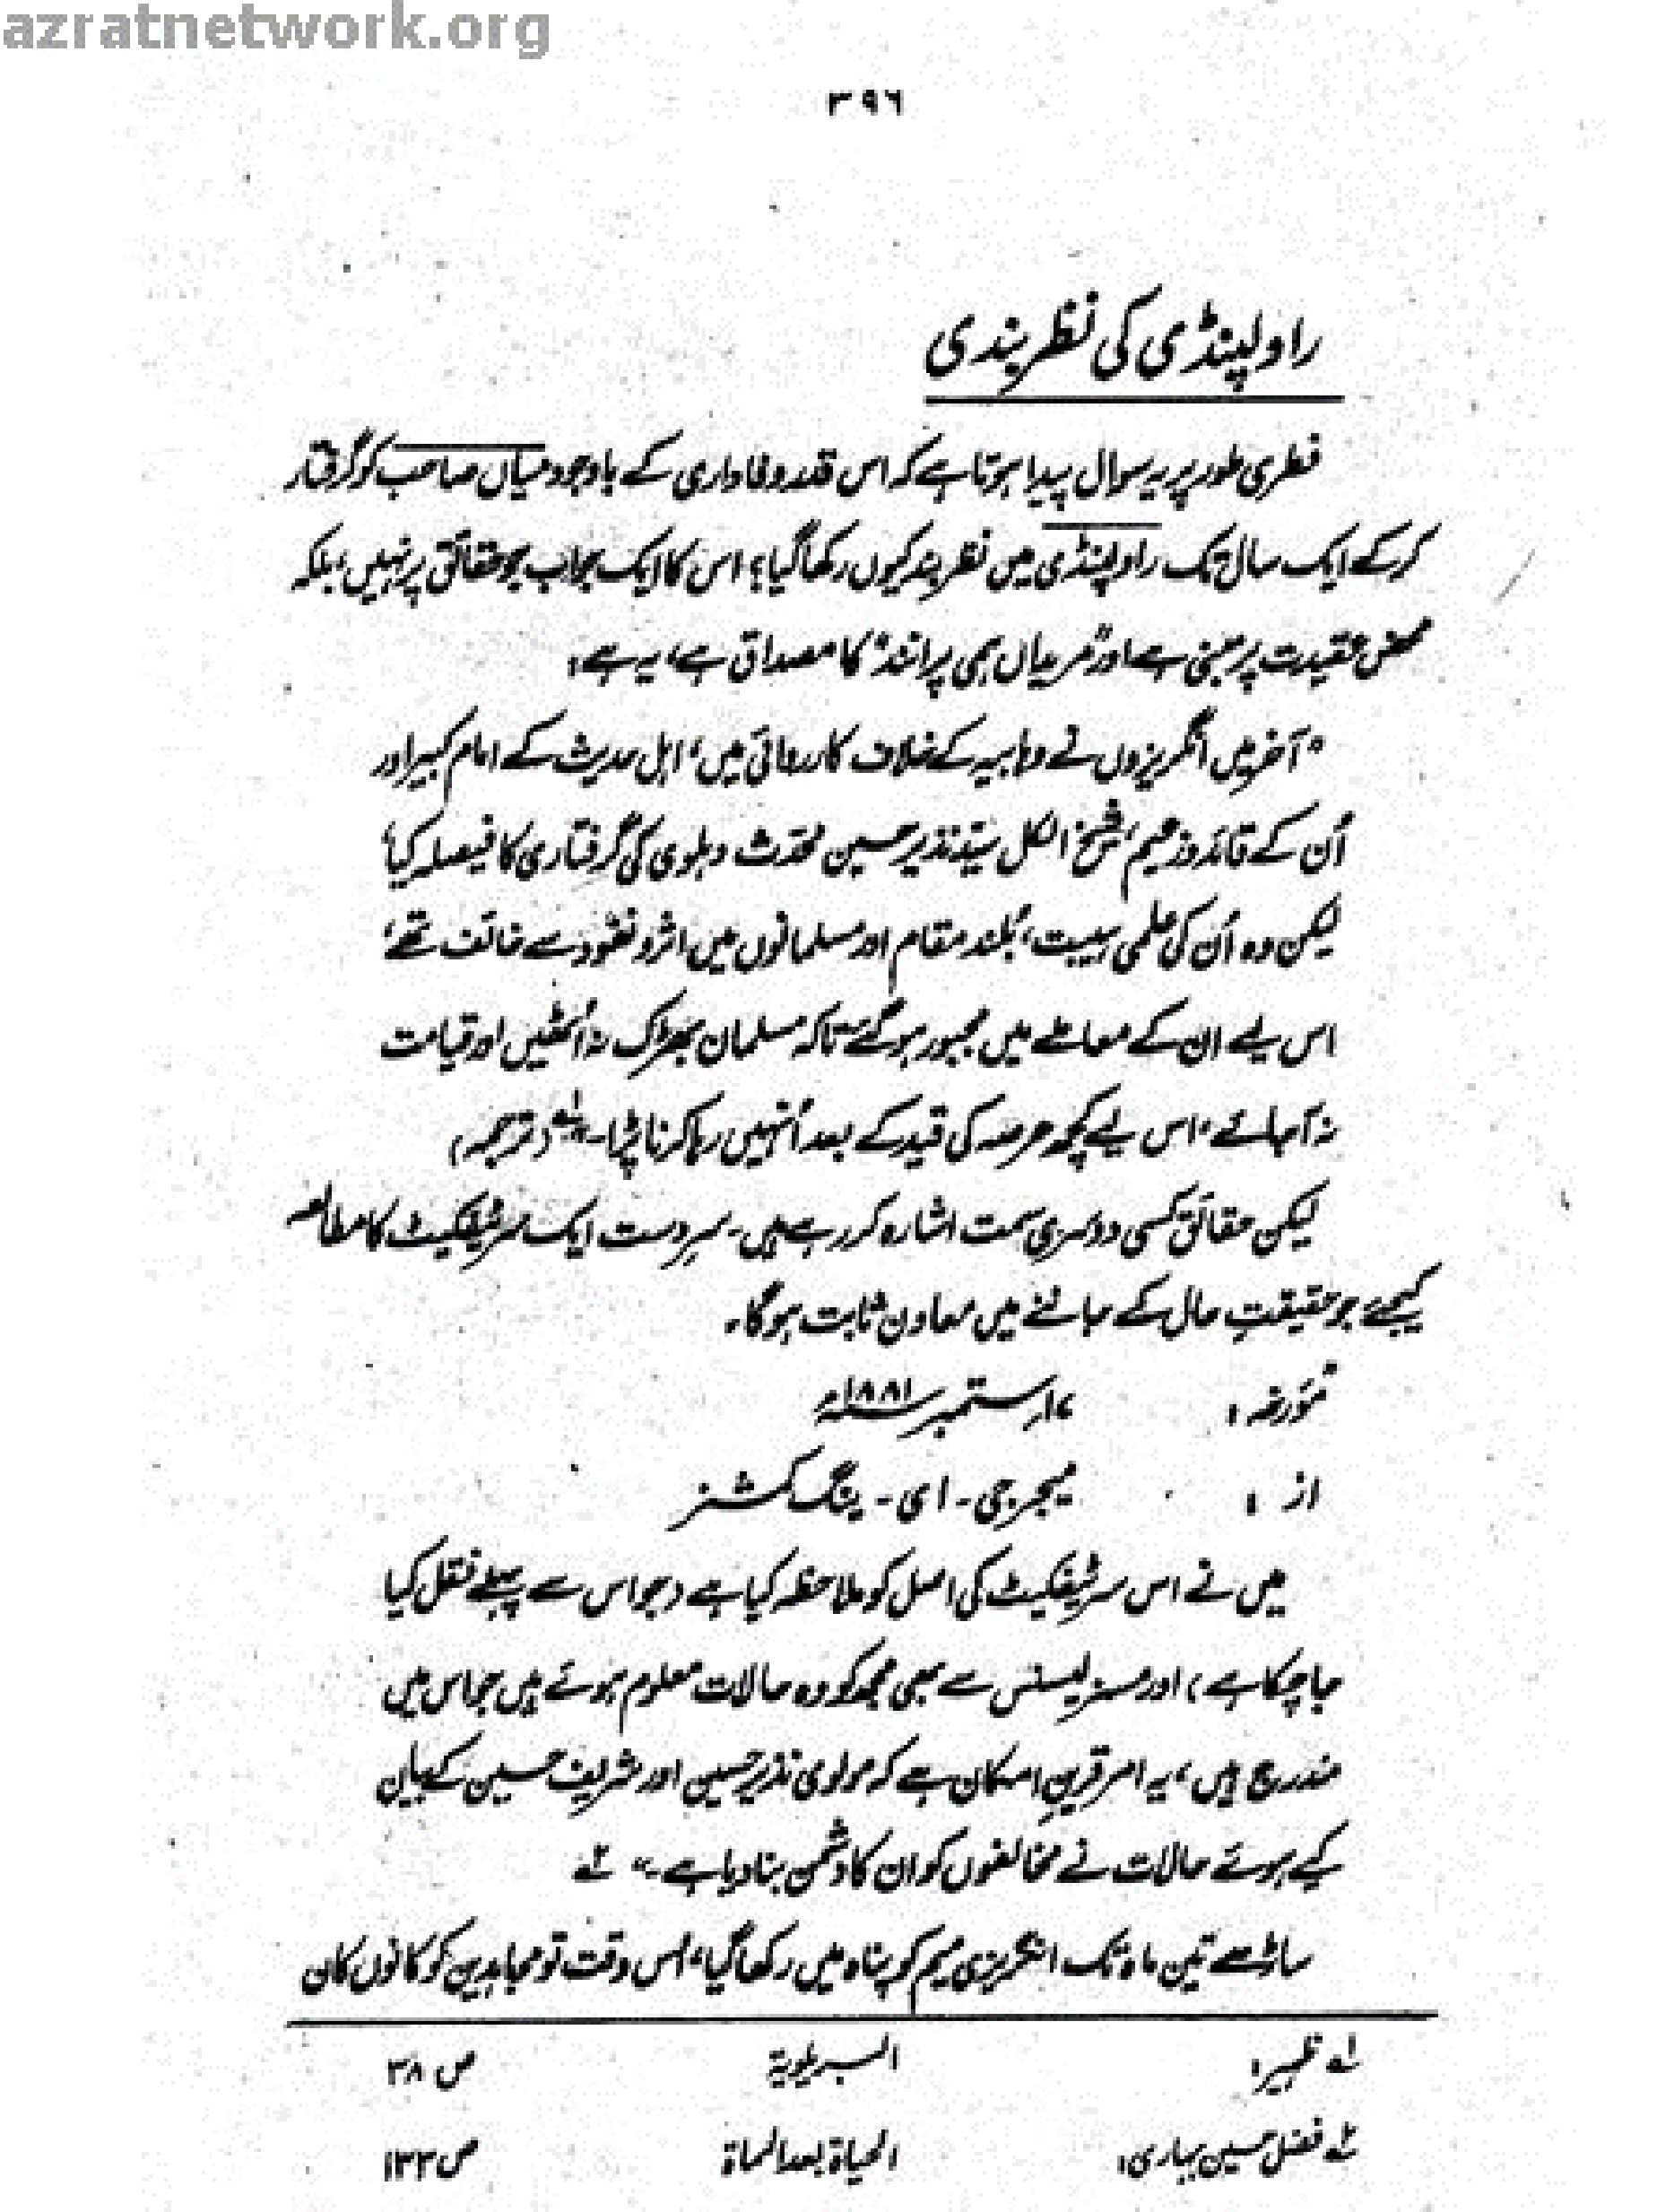 azratnetwork.org
۳۹۶
راولپنڈی کی نظر بندی
فطری طور پر یہ سوال پیدا ہوتا ہے کہ اس قدر وفاداری کے باوجود میاں صاحب کو گرفتار
کرکے ایک سال تک راولپنڈی میں نظر بند کیوں رکھا گیا؟ اس کا ایک جواب جو حقائق پر نہیں، بلکہ
محض عقیدت پر مبنی ہے اور "مریداں ہمی پرانند" کا مصداق ہے، یہ ہے:
"آخر میں انگریزوں نے وہابیہ کے خلاف کارروائی میں، اہل حدیث کے امام کبیر اور
اُن کے قائد و زعیم، شیخ الکل سیّد نذیر حسین محدّث دہلوی کی گرفتاری کا فیصلہ کیا،
لیکن وہ اُن کی علمی ہیبت، بُلند مقام اور مسلمانوں میں اثر و نفوذ سے خائف تھے،
اس لیے ان کے معاملے میں مجبور ہو گئے تاکہ مسلمان بھڑک نہ اُٹھیں اور قیامت
نہ آجائے، اس لیے کچھ عرصہ کی قید کے بعد اُنہیں رہا کرنا پڑا۔" لہ (ترجمہ)
لیکن حقائق کسی دوسری سمت اشارہ کر رہے ہیں۔ سرِدست ایک سرٹیفکیٹ کا مطالعہ
کیجیے، جو حقیقتِ حال کے جاننے میں معاون ثابت ہوگا۔
"مؤرخہ: ۱۷ ستمبر ۱۸۸۱ء
از: میجر جی۔ ای۔ ینگ کمشنر
میں نے اس سرٹیفکیٹ کی اصل کو ملاحظہ کیا ہے (جو اس سے پہلے نقل کیا
جا چکا ہے) اور مسز لیسنس سے بھی مجھ کو وہ حالات معلوم ہوئے ہیں جو اس میں
مندرج ہیں، یہ امر قرینِ امکان ہے کہ مولوی نذیر حسین اور شریف حسین کے بیان
کیے ہوئے حالات نے مخالفوں کو ان کا دشمن بنا دیا ہے۔" ۲ہ
ساڑھے تین ماہ تک انگریزی میم کو پناہ میں رکھا گیا، اُس وقت تو مجاہدین کو کانوں کان
لہ ظہیر: البریلویۃ ص ۳۸
۲ہ فضل حسین بہاری: الحیاۃ بعد المماۃ ص ۱۳۳